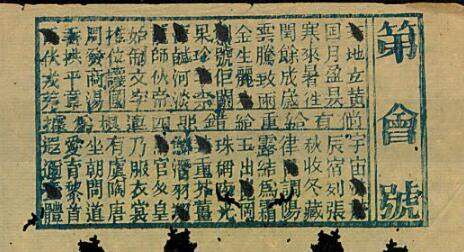 第會號
地立黃
日月盈昃
寒來暑往
閏餘成歲
雲騰致雨
金生麗
號佢闕
果珍李
鹹河淡
師伙帝
始制文字
推位讓國
周發商湯
垂拱平章
伏戎羌
宇宙
辰宿列張
秋收冬藏
律調陽
露結為霜
玉出岡
珠稱夜光
重芥薑
鱗潛羽翔
官人皇
乃服衣裳
有虞陶唐
坐朝問道
愛育黎首
遐邇壹體